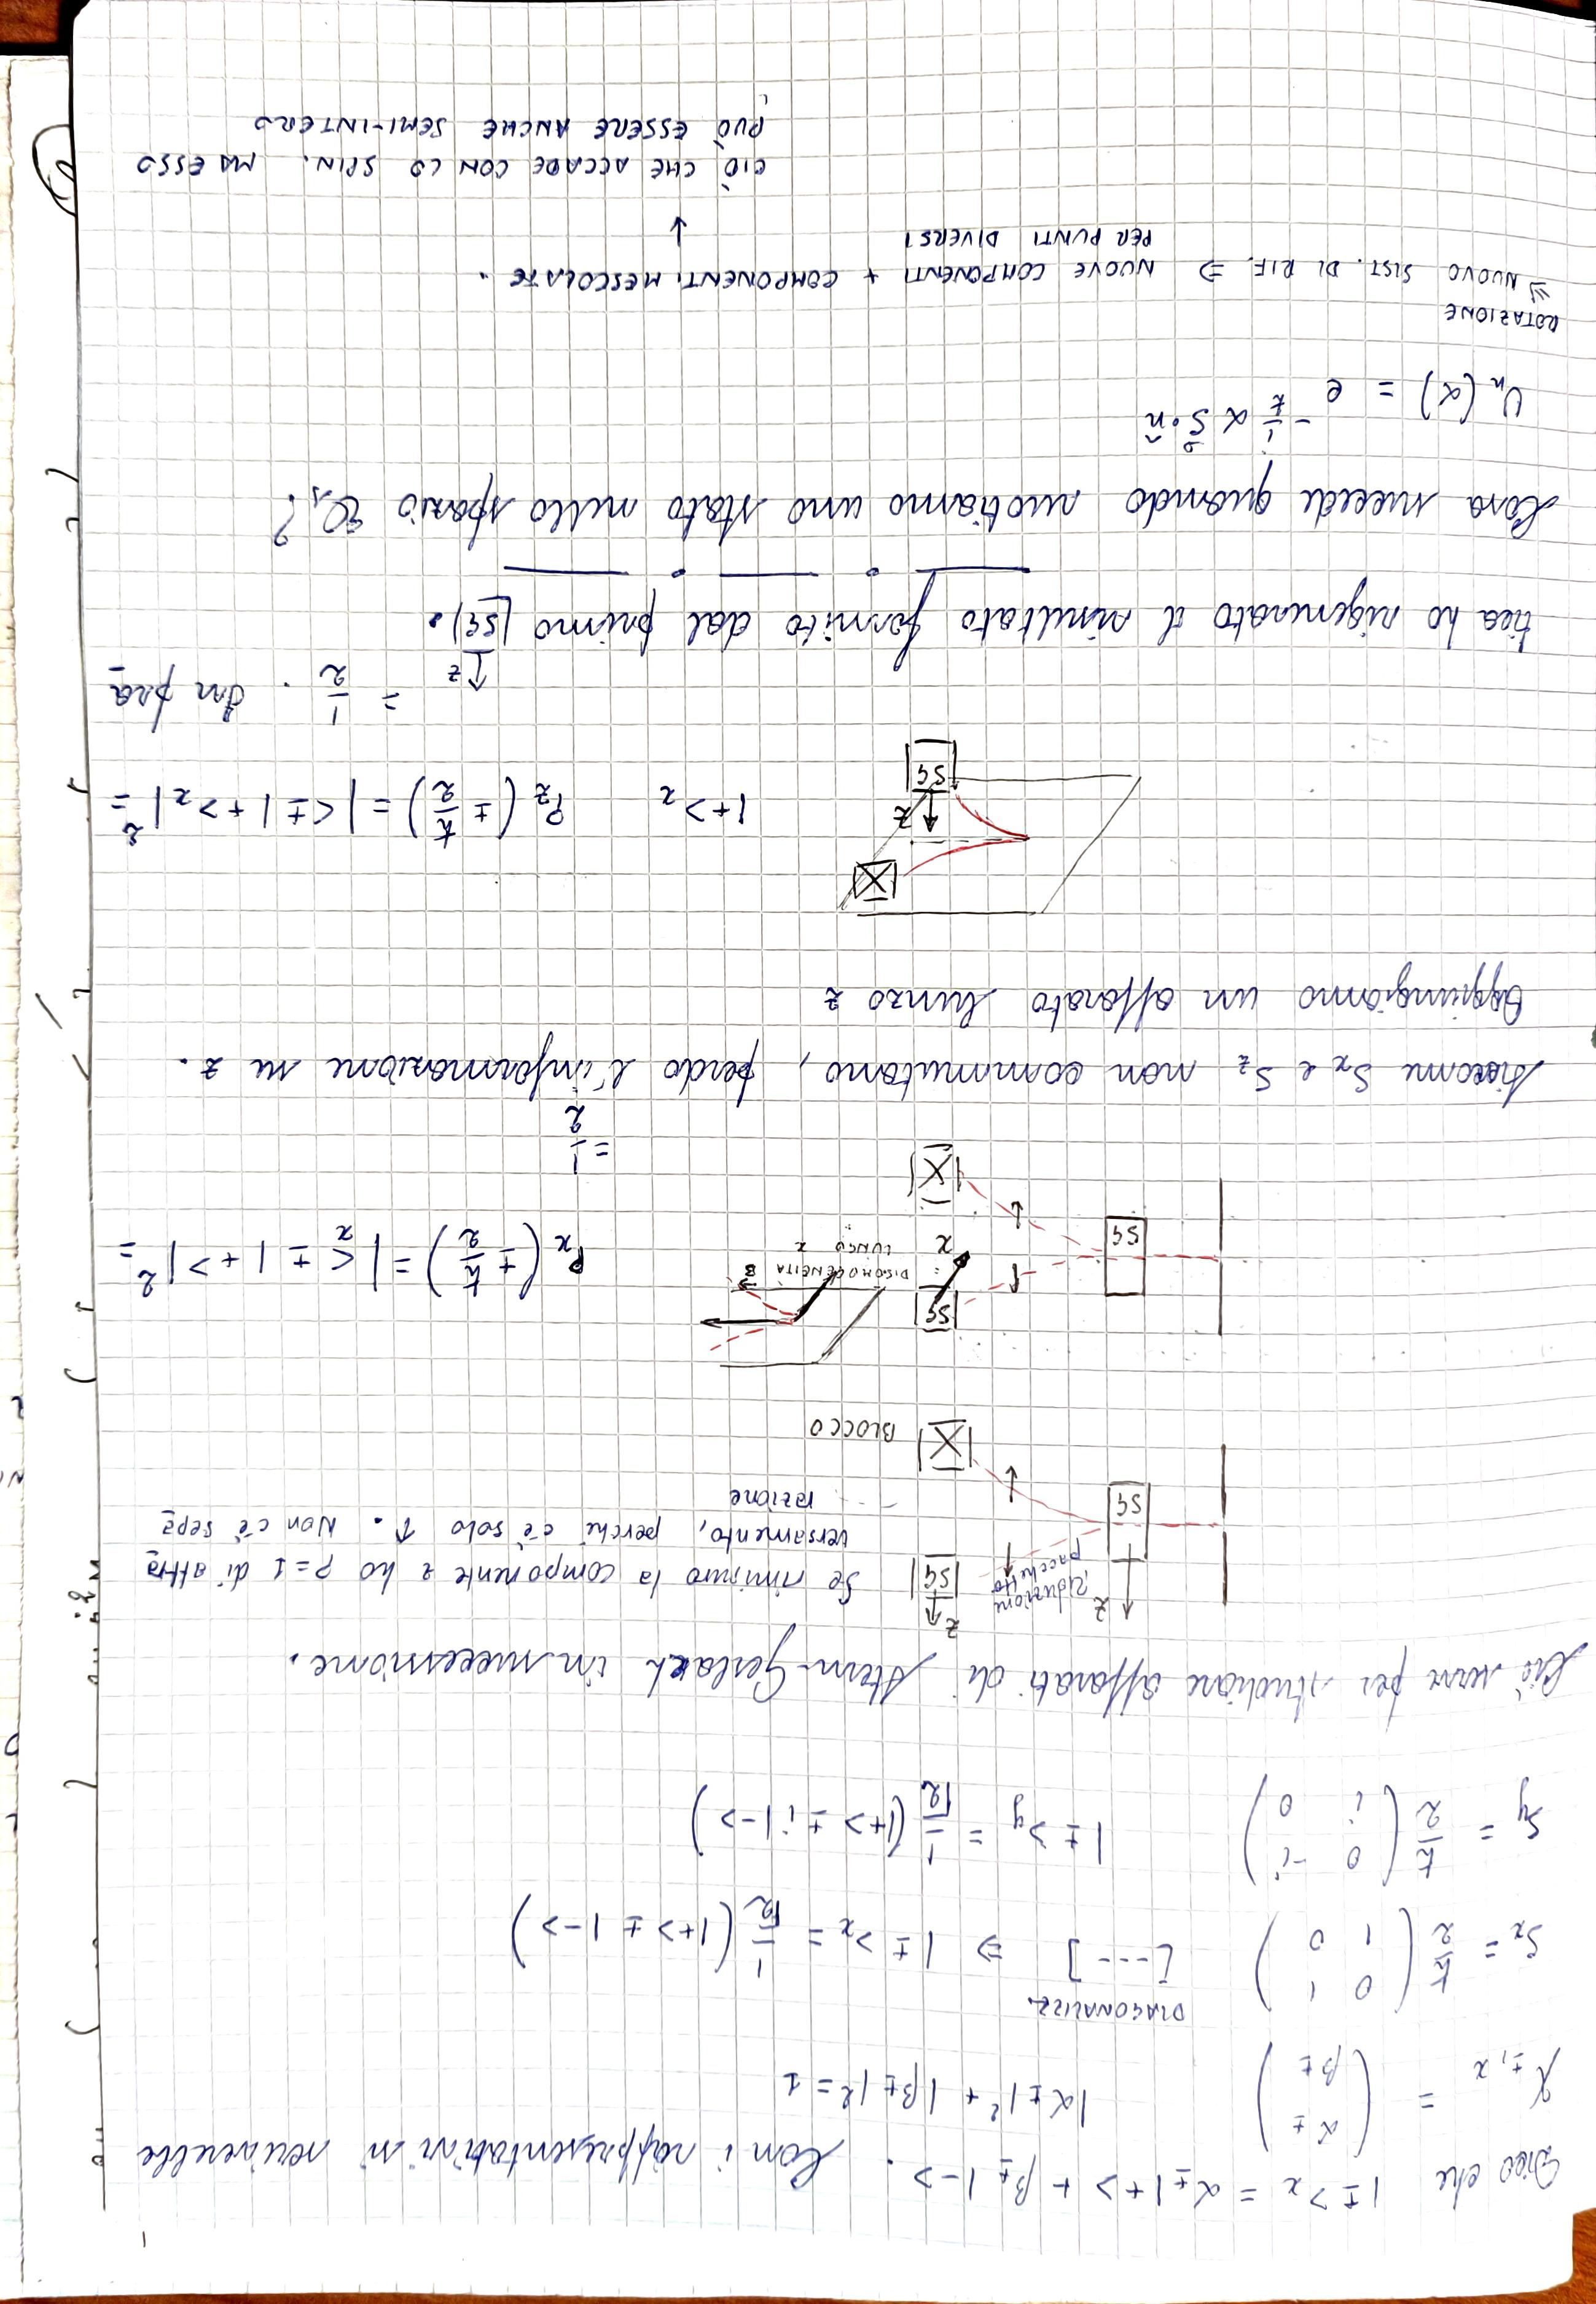 Dico che |±>x = α±|+> + β±|->. Con i rappresentativi si scriverebbe
χ±,x = (α± β±) |α±|² + |β±|² = 1
DIAGONALIZZ.
Sx = ħ/2 (0 1 1 0) [----] ⇒ |±>x = 1/√2 (|+> ± |->)
Sy = ħ/2 (0 -i i 0) |±>y = 1/√2 (|+> ± i|->)
Ciò serve per studiare apparati di Stern-Gerlach in successione.
z
z
SG
riduzione
pacchetto
SG
Se rimisuro la componente z ho P=1 di attra
versamento, perché c'è solo ↑. Non c'è sepa
razione
X
BLOCCO
SG
SG
x
X
DISOMOGENEITÀ
LUNGO x
B
Px(±ħ/2) = |x<±|+>|² =
= 1/2
Siccome Sx e Sz non commutano, perdo l'informazione su z.
Aggiungiamo un apparato lungo z
X
z
SG
|+>x Pz(±ħ/2) = |<±|+>x|² =
= 1/2. In pra
tica ho rigenerato il risultato fornito dal primo SG).
↑z
Cosa succede quando ruotiamo uno stato nello spazio ?
Un(α) = e^(-i/ħ α S·n̂)
ROTAZIONE
⇓
NUOVO SIST. DI RIF. ⇒ NUOVE COMPONENTI + COMPONENTI MESCOLATE.
PER PUNTI DIVERSI
↓
CIÒ CHE ACCADE CON LO SPIN. MA ESSO
PUÒ ESSERE ANCHE SEMI-INTERO